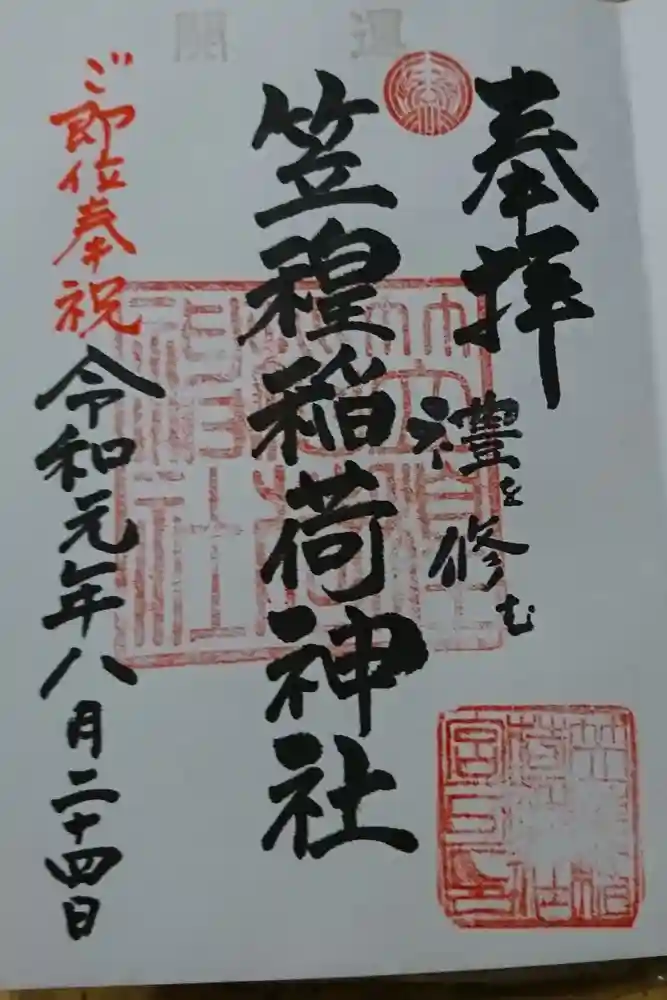 開運
奉拝
禮を修む
笠䅣稲荷神社
ご即位奉祝
令和元年八月二十四日